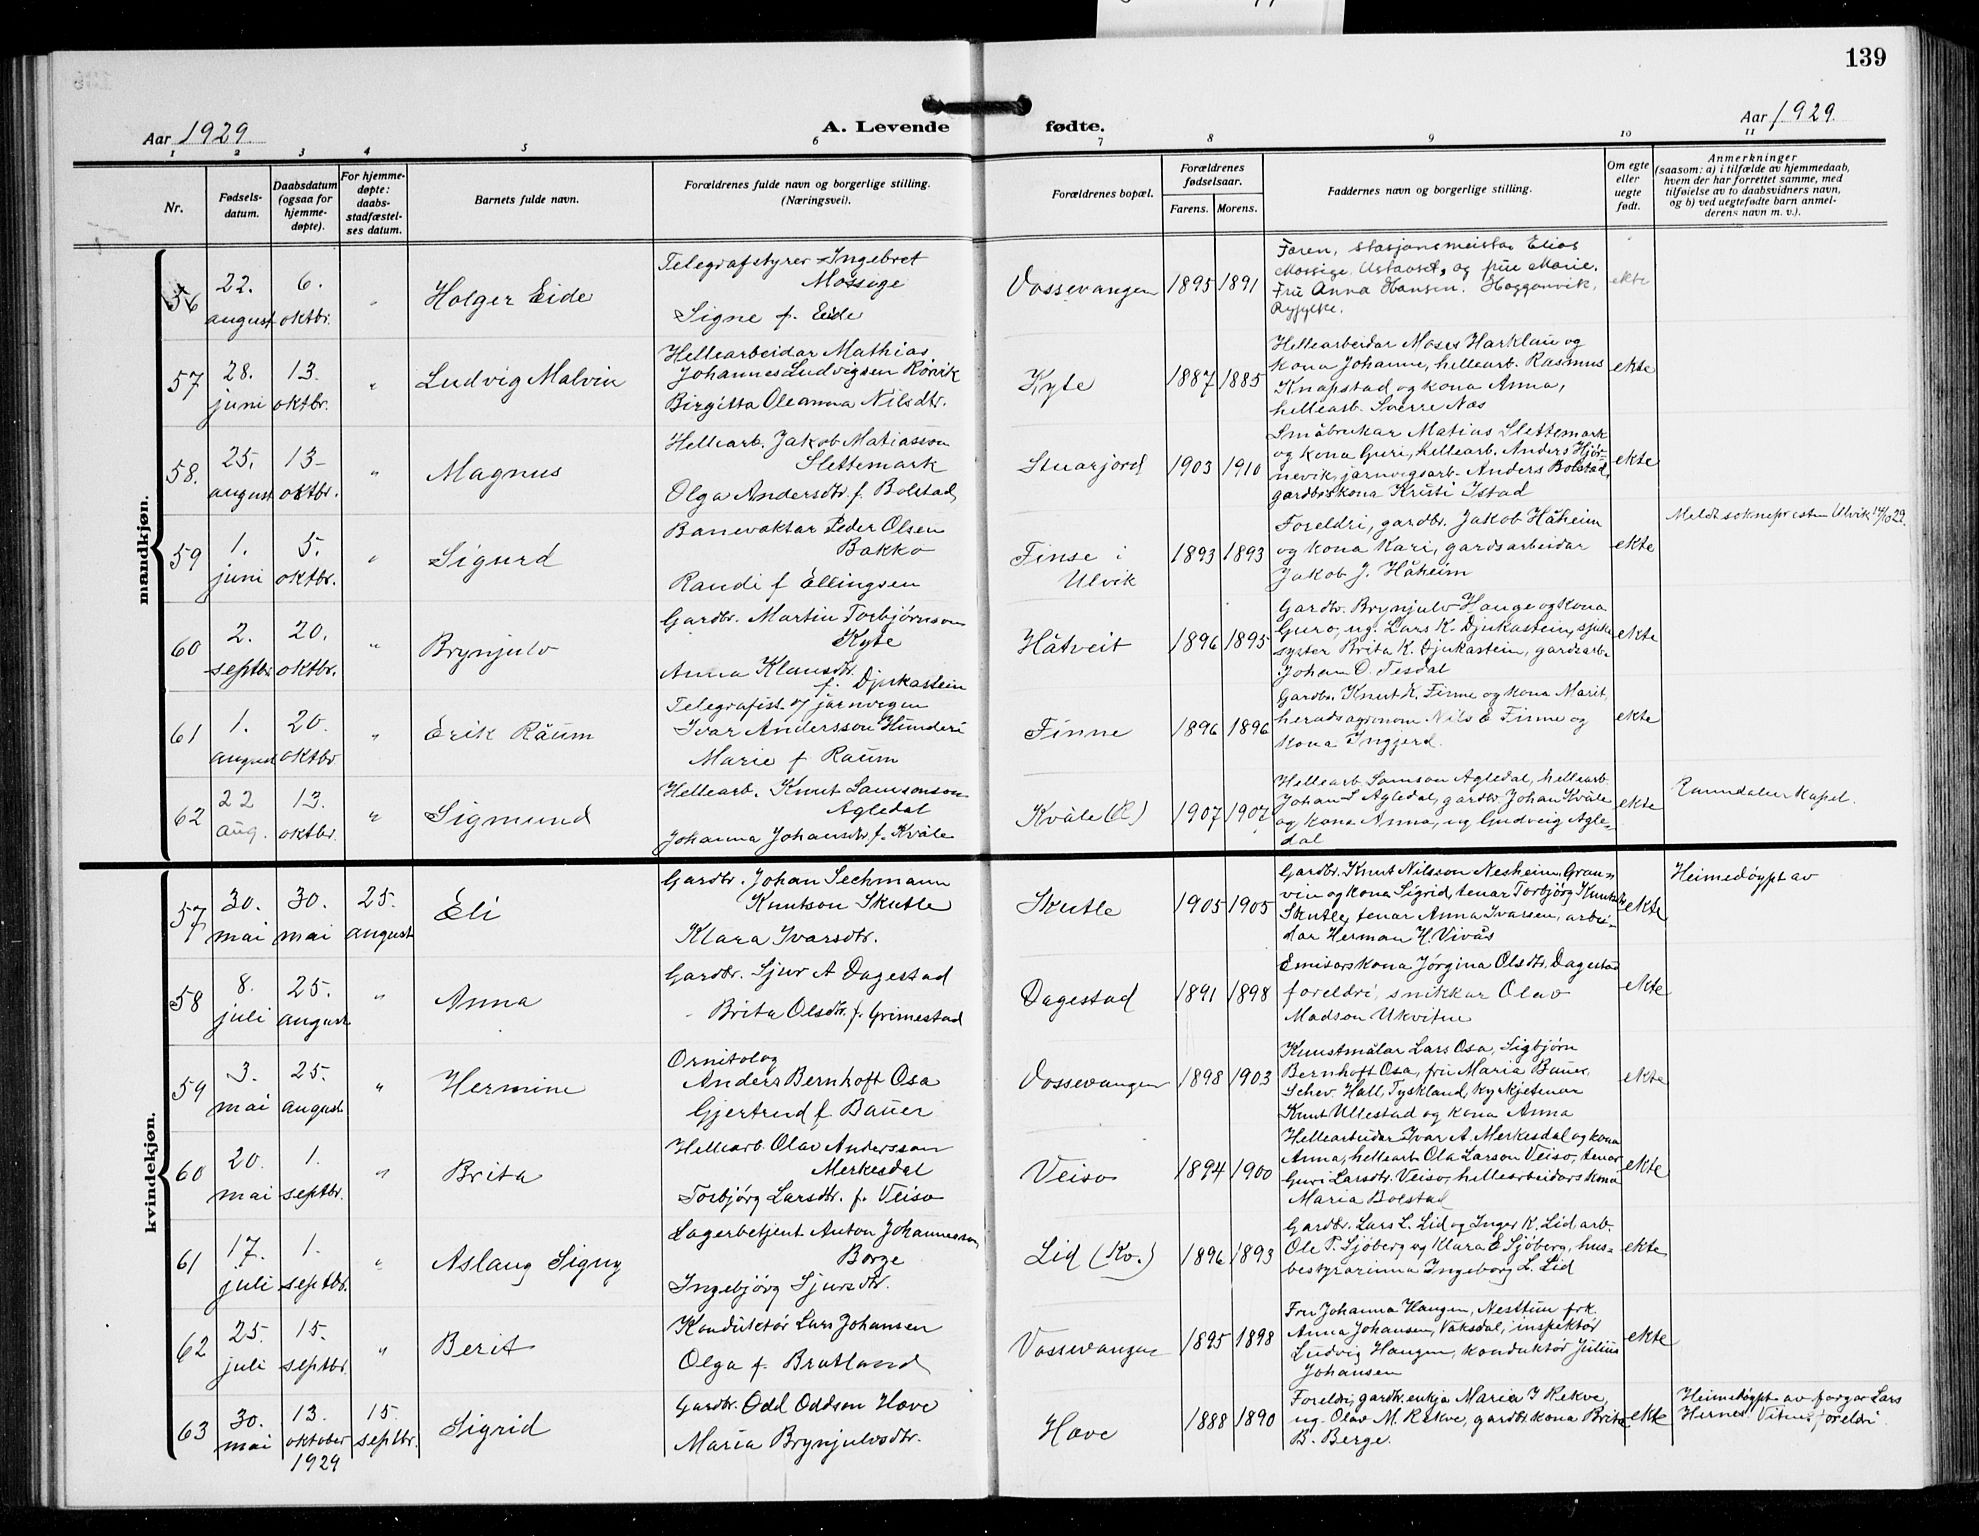 139
Aar 1929.
A. Levende fødte.
Aar 1929.
1 2 3 4 5 6 7 8 9 10 11
Nr.
Fødsels-
datum.
Daabsdatum
(ogsaa for
hjemme-
døpte).
For hjemme-
døpte:
daabs-
stadfæstel-
ses datum.
Barnets fulde navn.
Forældrenes fulde navn og borgerlige stilling.
(Næringsvei).
Forældrenes bopæl.
Forældrenes
fødselsaar.
Farens. Morens.
Faddernes navn og borgerlige stilling.
Om egte
eller
uegte
født.
Anmerkninger
(saasom: a) i tilfælde av hjemmedaab,
hvem der har forrettet samme, med
tilføielse av to daabsvidners navn,
og b) ved uegtefødte barn anmel-
derens navn m. v.).
mandkjøn.
56
22.
august
6.
oktbr.
"
Holger Eide
Telegrafstyrer Ingebret
Mossige
Signe f. Eide
Vossevangen
1895 1891
Faren, stasjonsmeistar Elias
Mossige, Ustaoset, og frue Marie.
Fru Anna Hansen. Hogganvik,
Ryfylke.
ekte
57
28.
juni
13.
oktbr.
"
Ludvig Malvin
Hellearbeidar Mathias
Johannes Ludvigsen Rørvik
Birgitta Oleanna Nilsdtr.
Kyte
1887 1885
Hellearbeidar Moses Harklau og
kona Johanne, hellearb. Rasmus
Knapstad og kona Anna,
hellearb. Sverre Næs
ekte
58.
25.
august
13-
oktbr.
"
Magnus
Hellearb. Jakob Matiasson
Slettemark
Olga Andersdtr. f. Bolstad
Stuarjord
1903 1910
Småbrukar Matias Slettemark
og kona Guri, hellearb. Anders Hjør-
nevik, jarnvegsarb. Anders Bolstad,
gardbr.kona Kristi Istad
ekte
59
1.
juni
5.
oktbr.
"
Sigurd
Banevaktar Peder Olsen
Bakko
Randi f Ellingsen
Finse i
Ulvik
1893 1893
Foreldri, gardbr. Jakob Håheim
og kona Kari, gardsarbeidar
Jakob J. Håheim
ekte
Meldt soknepresten Ulvik 14/10 29.
60
2.
septbr.
20.
oktbr.
"
Brynjulv
Gardbr. Martin Torbjørnson
Kyte
Anna Klausdtr.
f. Djukastein
Håtveit
1896 1895
Gardbr. Brynjulv Hauge og kona
Guro, ug. Lars K. Djukastein, sjuke
syster Brita K. Djukastein, gardsarb.
Johan O. Tesdal
ekte
61
1.
august
20.
oktbr
"
Erik Råum
Telegrafist v/ jarnvegen
Ivar Andersson Hunderi
Marie f Raum
Finne
1896 1896
Gardbr. Knut K. Finne og kona Marit,
heradsagronom Nils E Finne og
kona Ingjerd.
ekte
62
22
aug.
13.
oktbr.
"
Sigmund
Hellearb. Knut Samsonson
Agledal
Johanna Johansdtr f. Kvåle
Kvåle (Ø)
1907 1907
Hellearb. Samson Agledal, hellearb.
Johan S Agledal, gardbr. Johan Kvåle
og kona Anna, ug Gudveig Agle-
dal
ekte
Raundalen Kapel.
kvindekjøn.
57
30.
mai
30.
mai
25.
august
Eli
Gardbr. Johan Sechmann
Knutson Skutle
Klara Ivarsdtr.
Skutle
1905 1905
Gardbr. Knut Nilsson Nesheim, Gran-
vin og kona Sigrid, tenar Torbjørg Knutsdtr
Skutle, tenar Anna Ivarsen, arbei-
dar Herman H. Vivås
ekte
Heimedøypt av
58
8.
juli
25.
august
"
Anna
Gardbr. Sjur A Dagestad
Brita Olsdtr. f. Grimestad
Dagestad
1891 1898
Emisærskona Jørgina Olsdtr. Dagestad
foreldri, snikkar Olav
Madson Ukvitne
ekte
59
3.
mai
25.
august
"
Hermine
Ornitolog
Anders Bernhoft Osa
Gjertrud f Bauer
Vossevangen
1898 1903
Kunstmålar Lars Osa, Sigbjørn
Bernhoft Osa, fru Maria Bauer
Schev. Hall, Tyskland, kyrkjetenar
Knut Ullestad og kona Anna
ekte
60
20.
mai
1.
septbr.
"
Brita
Hellearb. Olav Andersson
Merkesdal
Torbjørg Larsdtr. f. Veiso
Veiso
1894 1900
Hellearbeidar Ivar A. Merkesdal og kona
Anna, hellearb Ola Larson Veiso, tenar
Guri Larsdtr. Veiso, hellearbeidarskona
Maria Bolstad
ekte
61
17.
juli
1.
septbr.
"
Aslaug Signy
Lagerbetjent Anton Johannesson
Borge
Ingebjørg Sjursdtr.
Lid (Kv.)
1896 1893
Gardbr. Lars L. Lid og Inger K. Lid arb.
Ole P. Sjöberg og Klara E Sjöberg, hus-
bestyrarinna Ingeborg L. Lid
ekte
62
25.
juli
15.
septbr.
"
Berit
Konduktør Lars Johansen
Olga f. Bratland
Vossevangen
1895 1898
Fru Johanna Haugen, Nesttun frk.
Anna Johansen, Vaksdal, inspektør
Ludvig Haugen, konduktør Julius
Johansen
ekte
63
30.
mai
13.
oktober
1929
15.
septbr.
Sigrid
Gardbr. Odd Oddson Hove
Maria Brynjulvsdtr.
Hove
1888 1890
Foreldri, gardbr. enkja Maria J Rekve,
ug. Olav M. Rekve, gardbr. kona Brita
B. Berge.
ekte
Heimedøypt av fargar Lars
Hernes. Vitne: foreldri